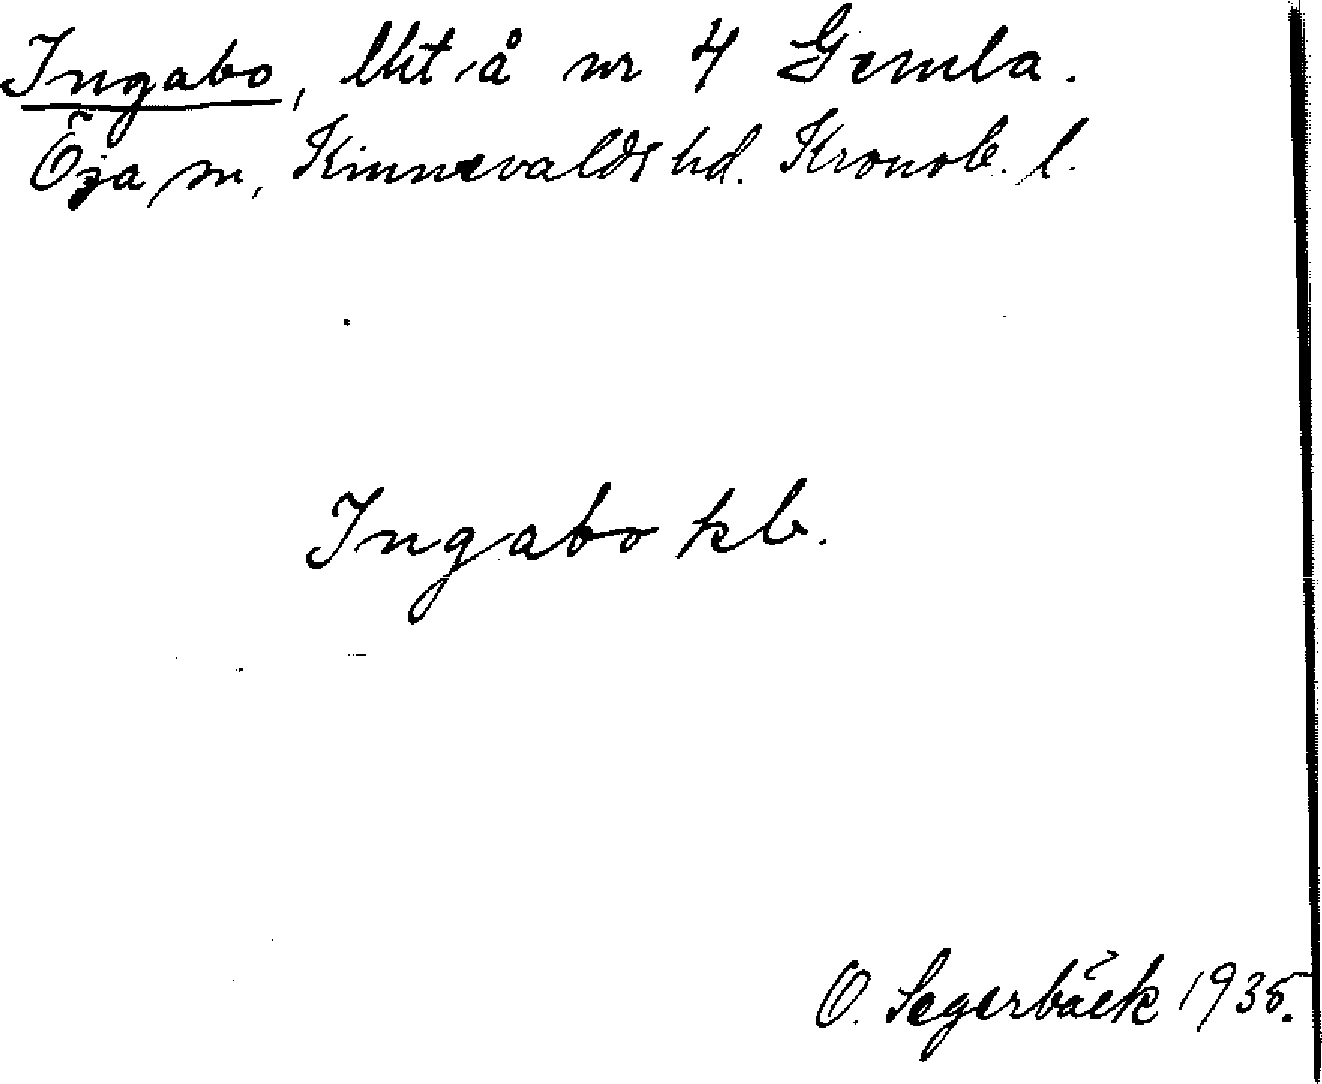 Ingabo, lht å nr 4 Gemla.
Öja sn, Kinnevalds hd. Kronob. l.
Ingabo kb.
O. Segerbäck 1935.